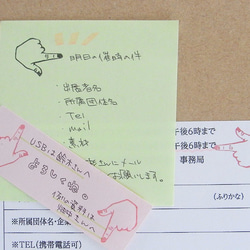 明日の催時の件
・出店者名
・所属団体名
・Tel
・mail
・意料
さんにメール
お願いします。
USBは鈴木さんへ
よろしくね。
午後6時まで
午後6時まで
事務局
(ふりかな)
※所属団体名・企業
※TEL(携帯電話可)